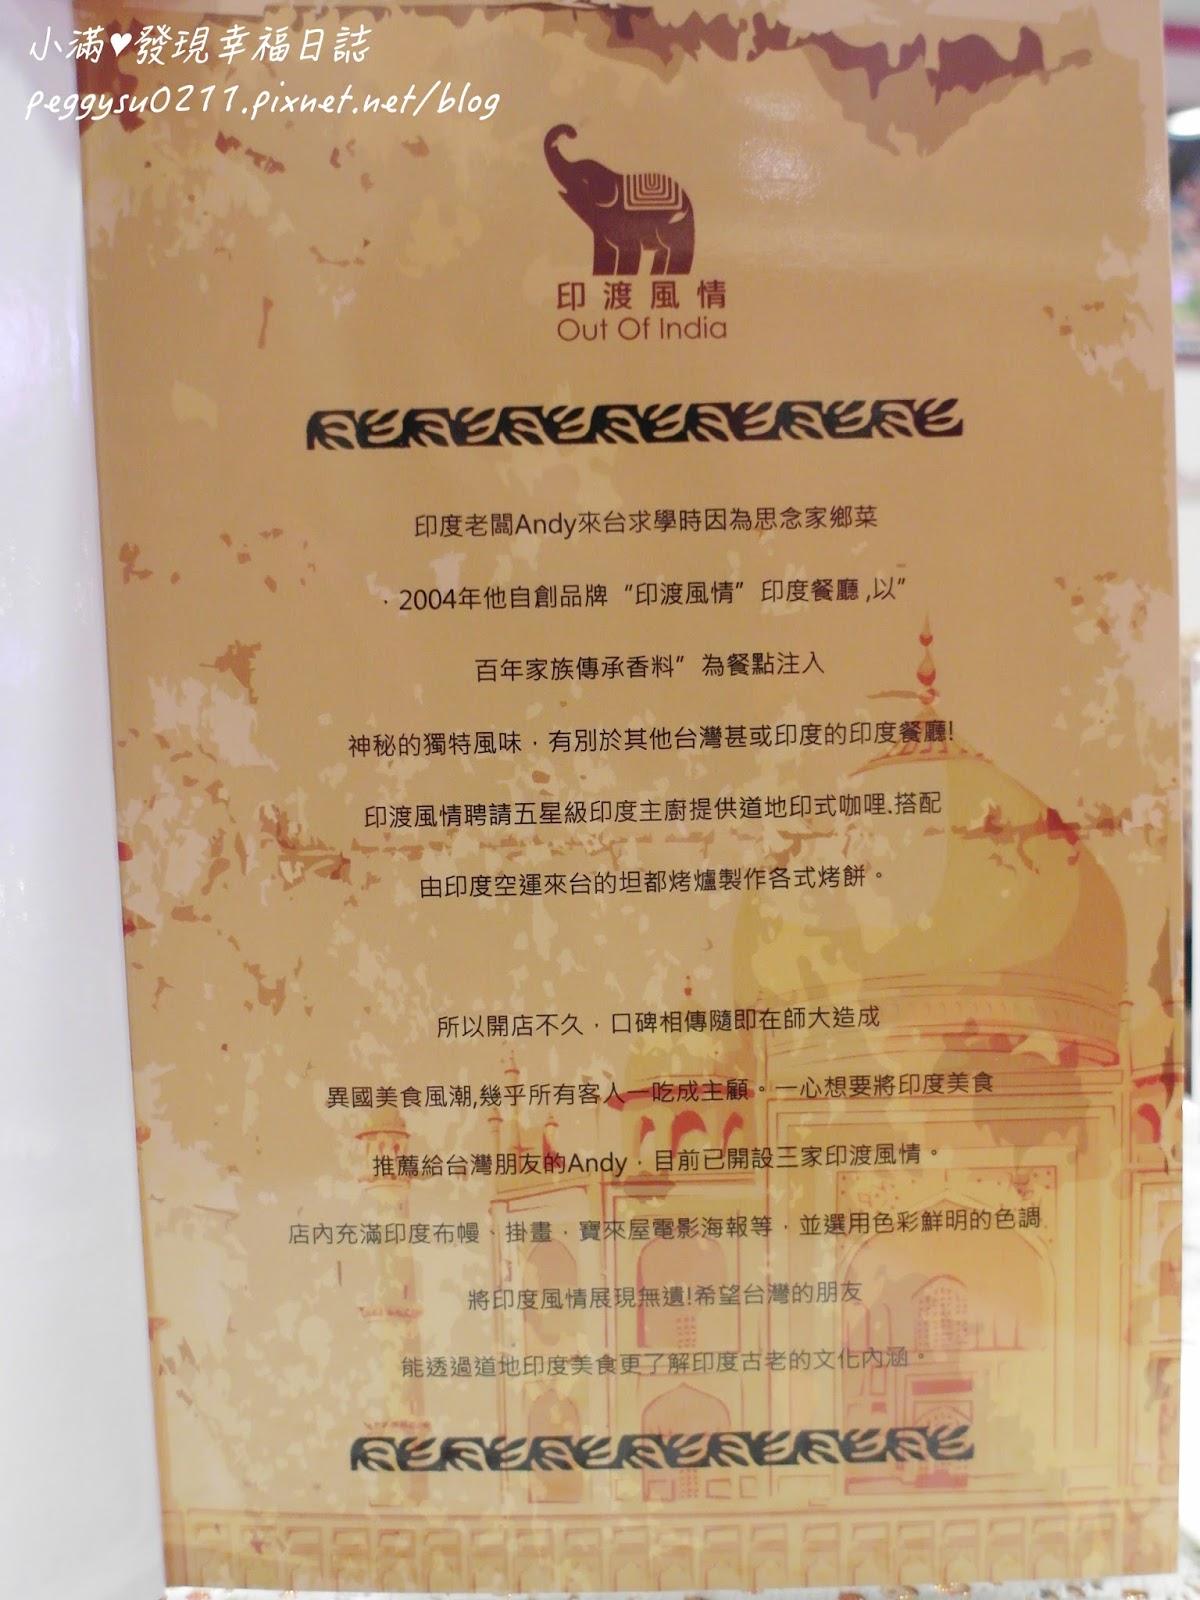 小滿♥發現幸福日誌
peggysu0211.pixnet.net/blog
印渡風情
Out Of India
印度老闆Andy來台求學時因為思念家鄉菜
，2004年他自創品牌“印渡風情”印度餐廳,以”
百年家族傳承香料”為餐點注入
神秘的獨特風味，有別於其他台灣甚或印度的印度餐廳!
印渡風情聘請五星級印度主廚提供道地印式咖哩.搭配
由印度空運來台的坦都烤爐製作各式烤餅。
所以開店不久，口碑相傳隨即在師大造成
異國美食風潮,幾乎所有客人一吃成主顧。一心想要將印度美食
推薦給台灣朋友的Andy，目前已開設三家印渡風情。
店內充滿印度布幔、掛畫，寶來屋電影海報等，並選用色彩鮮明的色調
將印度風情展現無遺!希望台灣的朋友
能透過道地印度美食更了解印度古老的文化內涵。